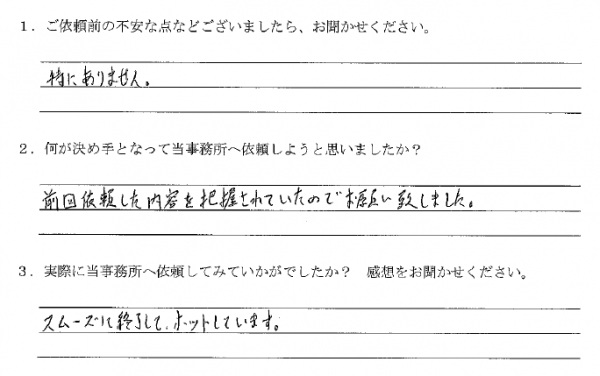 1．ご依頼前の不安な点などございましたら、お聞かせください。
特にありません。
2．何が決め手となって当事務所へ依頼しようと思いましたか？
前回依頼した内容を把握されていたのでお願い致しました。
3．実際に当事務所へ依頼してみていかがでしたか？　感想をお聞かせください。
スムーズに終了して、ホットしています。